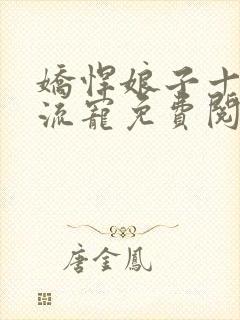 嬌悍娘子十
流寵免費閱
唐金鳳